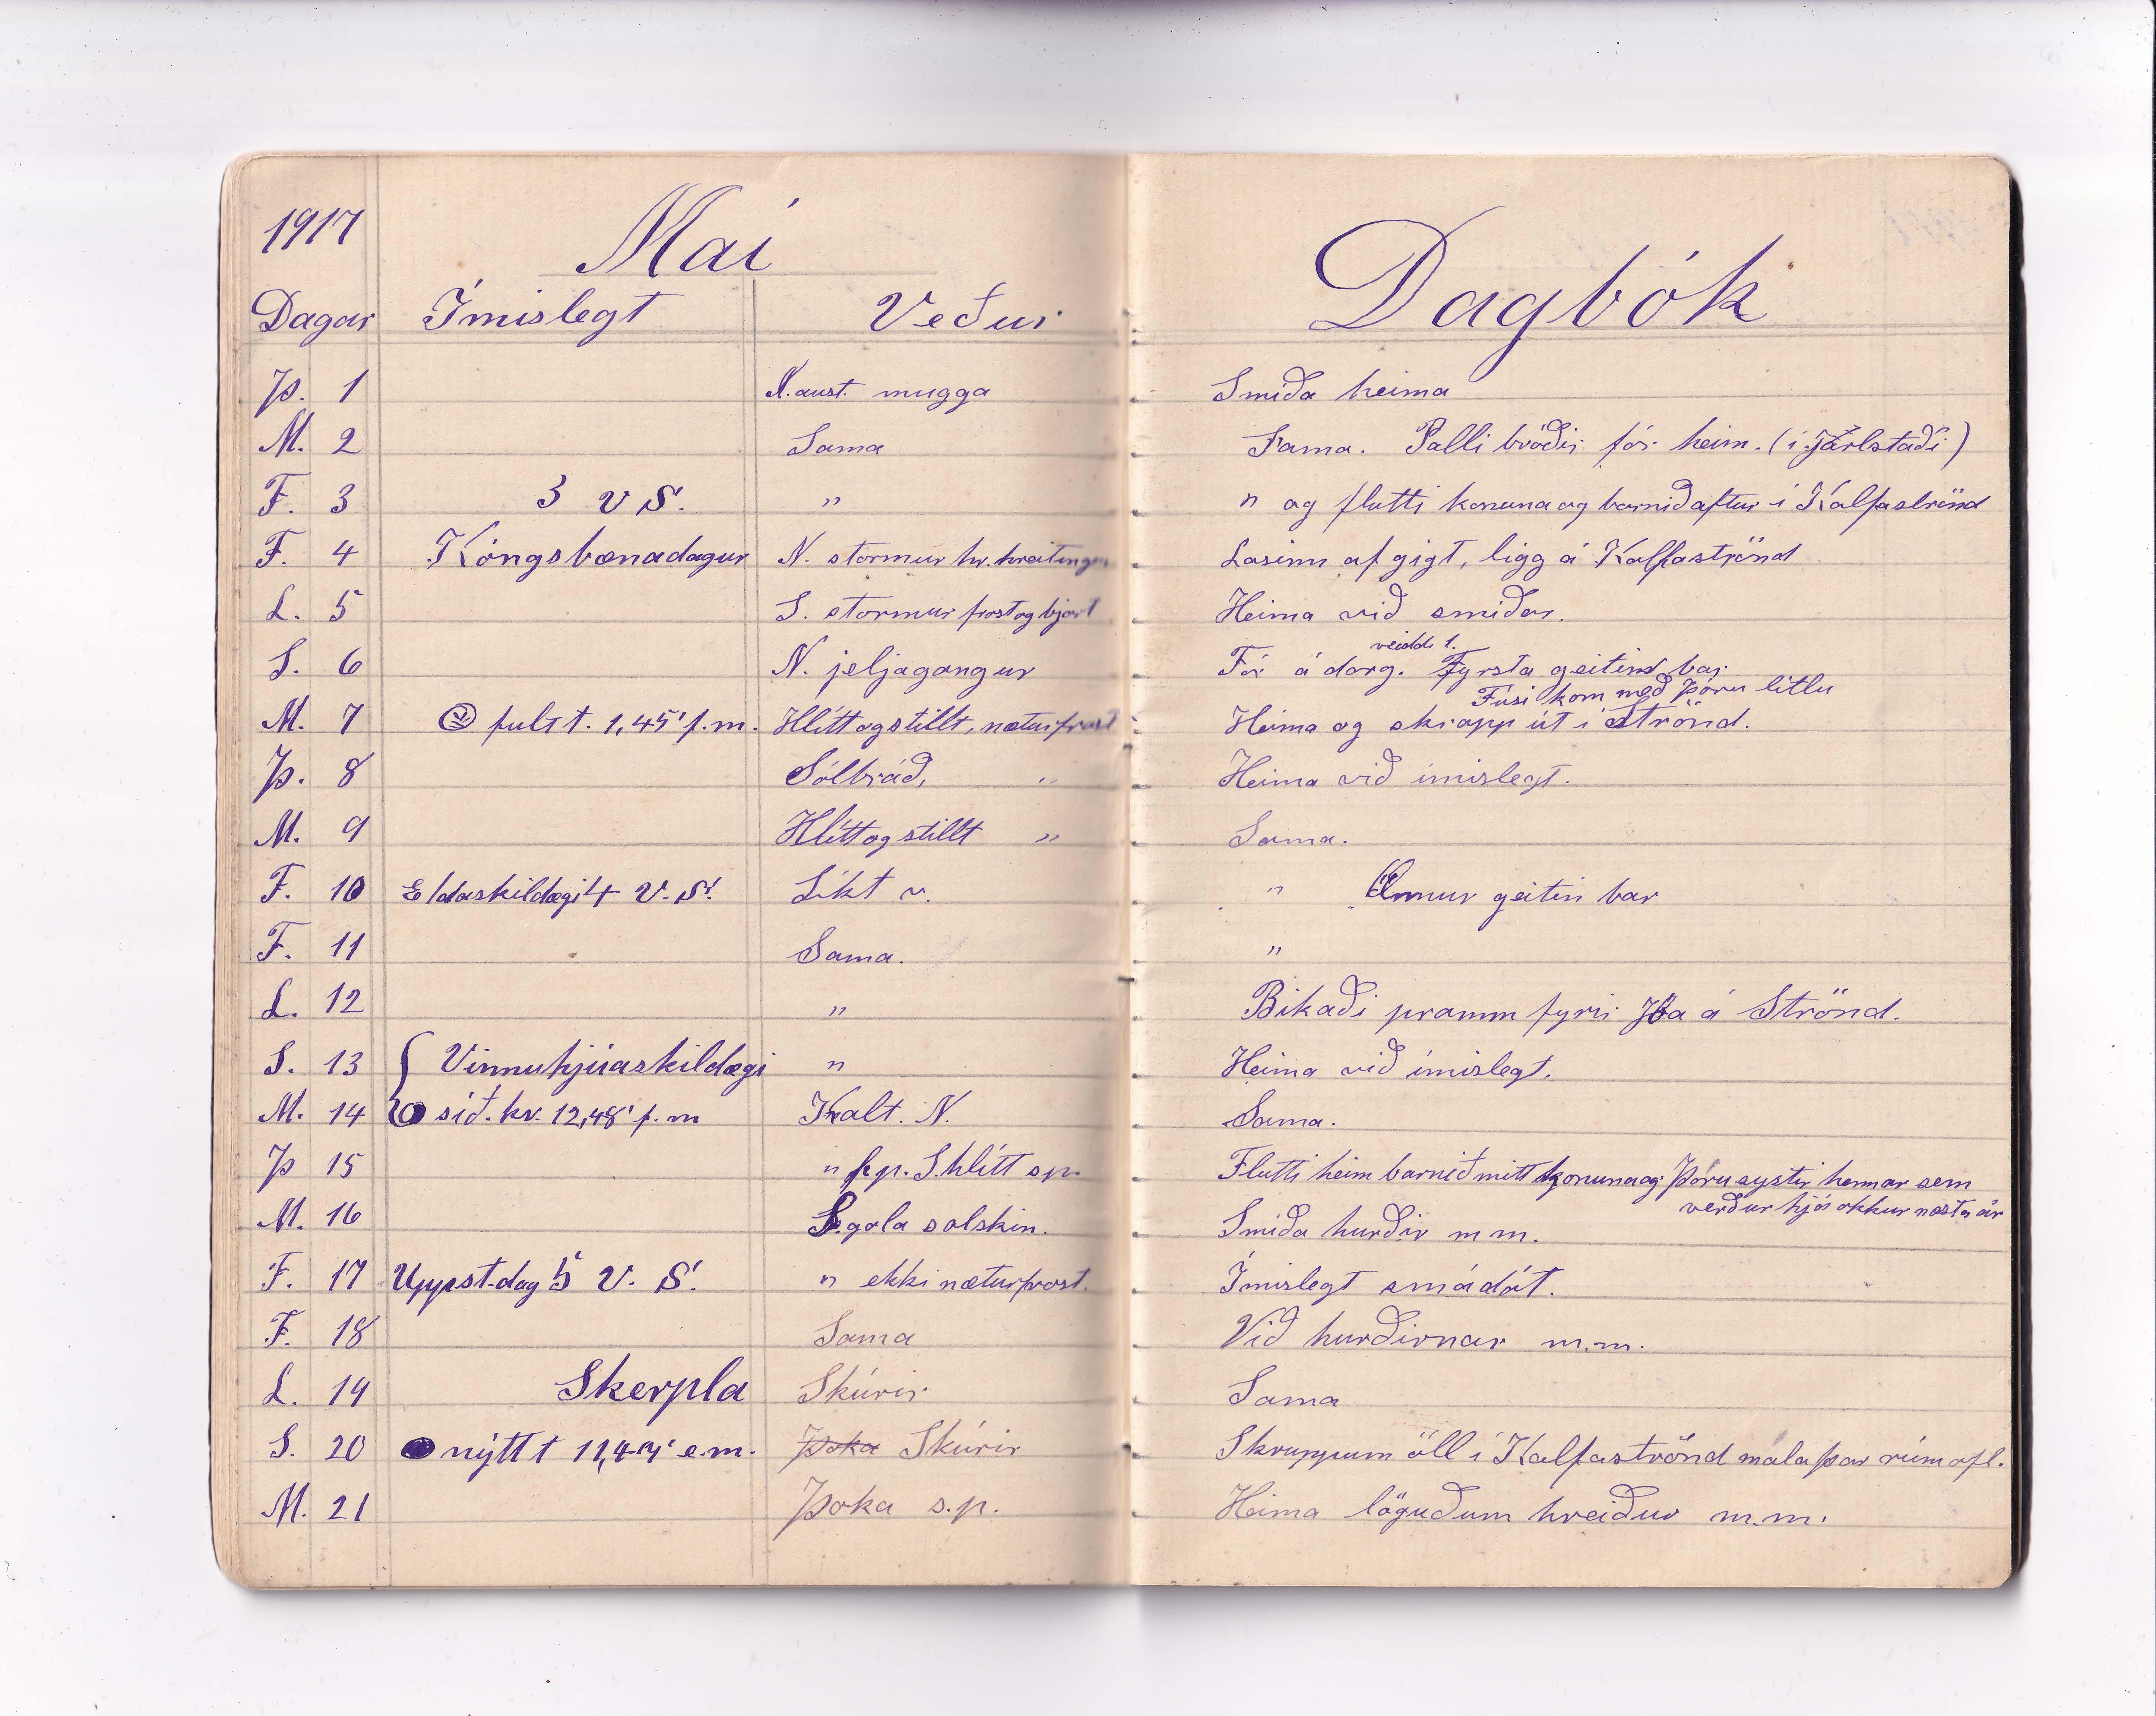 1917 Maí
Dagar Ímislegt Veður
Þ. 1 N. aust. mugga
M. 2 Sama
F. 3 3 V S. "
F. 4 Kóngsbænadagur N. stormur hr. hreitingur
L. 5 S. stormur frost og bjart
S. 6 N. jeljagangur
M. 7 fult t. 1,45' f.m. Hlítt og stillt, næturfrost
Þ. 8 Sólbráð, "
M. 9 Hlítt og stillt "
F. 10 Eldaskildagi 4 V. S. Líkt v.
F. 11 Sama.
L. 12 "
S. 13 Vinnuhjúaskildagi "
M. 14 síð. kv. 12,48' f.m Kalt. N.
Þ 15 " f.p. S. hlítt s.p.
M. 16 S. gola solskin.
F. 17 Uppst.dag 5 V. S. " ekki næturfrost.
F. 18 Sama
L. 19 Skerpla Skúrir
S. 20 nýtt t 11,47' e.m. Þoka Skúrir
M. 21 Þoka s.p.
Dagbók
Smíða heima
Sama. Palli bróðir fór heim. (í Jarlstaði)
" og flutti konuna og barnið aftur í Kalfaströnd
Lasinn af gigt, ligg á Kalfaströnd
Heima við smíðar.
veiddi 1.
Fór á dorg. Fyrsta geitind bar
Fúsi kom með Þóru litlu
Heima og skrapp út í Strönd.
Heima við ímislegt.
Sama.
" Önnur geitin bar
"
Bikaði pramm fyrir Jóa á Strönd.
Heima við ímislegt.
Sama.
Flutti heim barnið mitt konuna og Þóru systir hennar sem
verður hjá okkur næsta ár
Smíða hurðir m m.
Ímislegt smádót.
Við hurðirnar m.m.
Sama
Skruppum öll í Kalfaströnd mála þar rúm ofl.
Heima löguðum hreiður m.m.